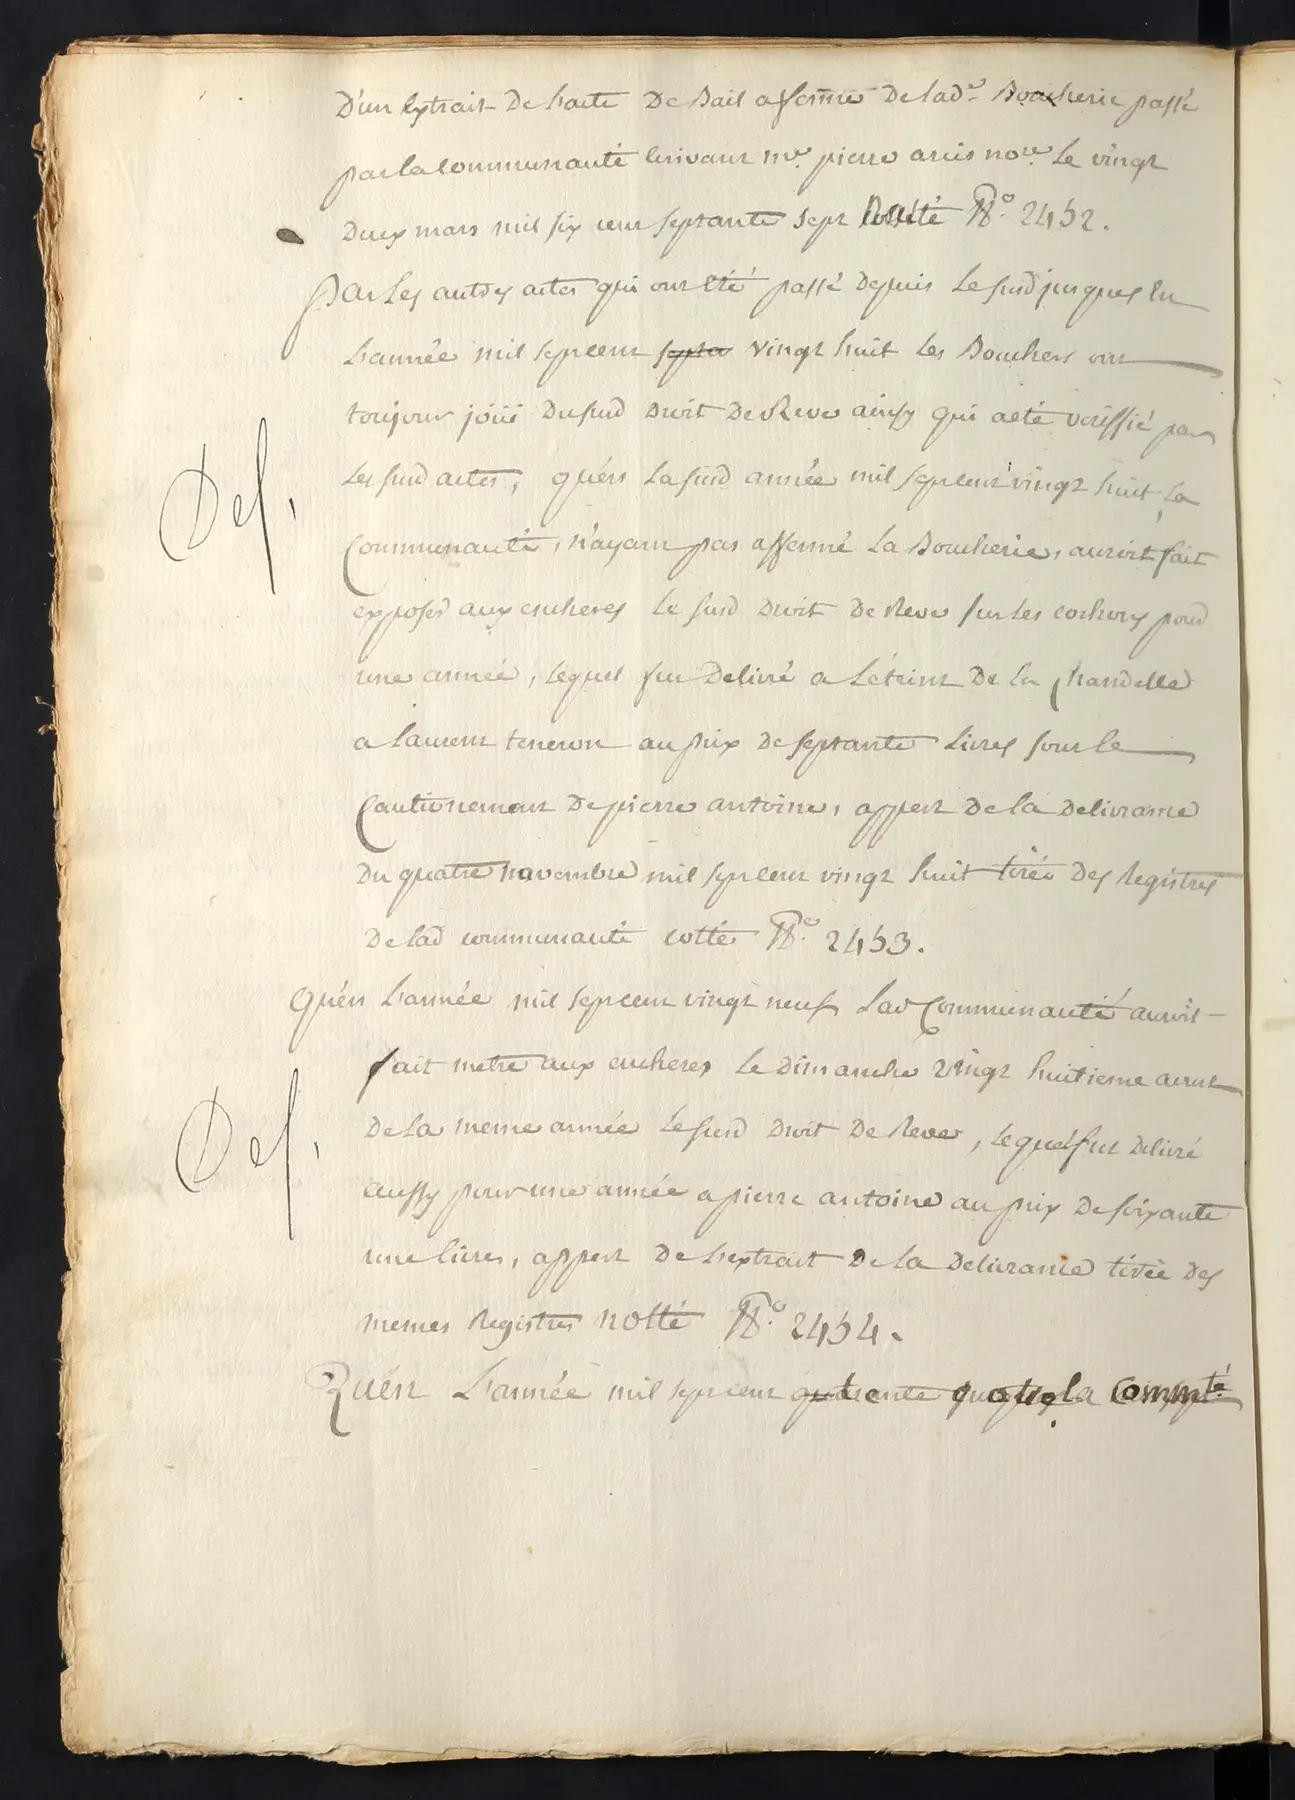 D'un Extrait De l'acte De Bail afferme De lade Boucherie passé
par la Communauté Ecrivant me pierre arcis nore Le vingt
Deux mars mil six cent septante sept Cotté No. 2452.
Par Les autres actes qui ont été passé Depuis Le susd jusques En
L'année mil sept cent septa vingt huit Les Bouchers ont
toujour joüi Du susd Droit De Reve ainsy qui a eté veriffié par
Les susd actes, qu'en La susd année mil sept cent vingt huit La
Communauté, n'ayant pas affermé La Boucherie, auroit fait
exposer aux encheres Le susd Droit De Reve sur Les cochons pour
une année, Lequel fut Delivré a L'éteint De La Chandelle
a Laurent teneron au prix De septante Livres sous Le
Cautionement De pierre antoine, appert De La Delivrance
Du quatre novembre mil sept cent vingt huit tirée Des Registres
De Lad communauté cotté No. 2453.
Qu'en L'année mil sept cent vingt neuf Lad Communauté auroit
fait metre aux encheres Le Dimanche vingt huitieme aoust
De La meme année Le susd Droit De Reve, Lequel fut Delivré
aussy pour une année a pierre antoine au prix De soixante
une livres, appert De L'extrait De La Delivrance tirée Des
memes Registres notté No. 2454.
Quen L'année mil sept cent quarante quatre La Commté
Del.
Del.